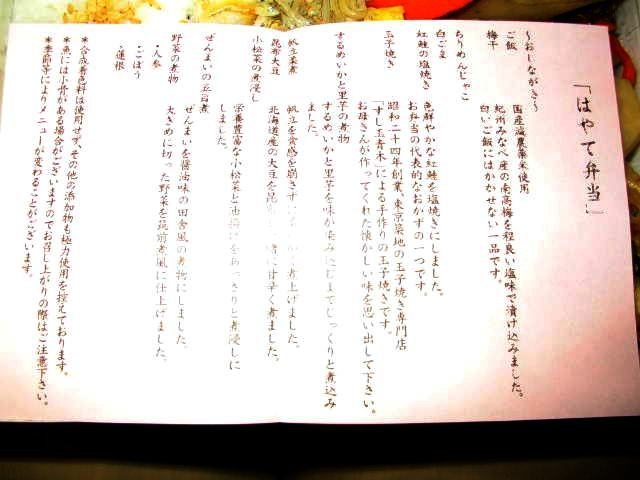 「はやて弁当」
～おしながき～
ご飯
国産減農薬米使用
梅干
紀州みなべ産の南高梅を程良い塩味で漬け込みました。
白いご飯にはかかせない一品です。
ちりめんじゃこ
白ごま
紅鮭の塩焼き
色鮮やかな紅鮭を塩焼きにしました。
お弁当の代表的なおかずの一つです。
玉子焼き
昭和二十四年創業、東京築地の玉子焼き専門店
「すし玉青木」による手作りの玉子焼きです。
お母さんが作ってくれた懐かしい味を思い出して下さい。
するめいかと里芋の煮物
するめいかと里芋を味が染み込むまでじっくりと煮込み
ました。
帆立柔煮
帆立を食感を崩さず 煮上げました。
昆布大豆
北海道産の大豆を昆布と 緒に甘辛く煮ました。
小松菜の煮浸し
栄養豊富な小松菜と油揚げをあっさりと煮浸しに
しました。
ぜんまいの五目煮
ぜんまいを醤油味の田舎風の煮物にしました。
野菜の煮物
大きめに切った野菜を筑前煮風に仕上げました。
・人参
・ごぼう
・蓮根
＊合成着色料は使用せず、その他の添加物も極力使用を控えております。
＊魚には小骨がある場合がございますのでお召し上がりの際はご注意下さい。
＊季節等によりメニューが変わることがございます。